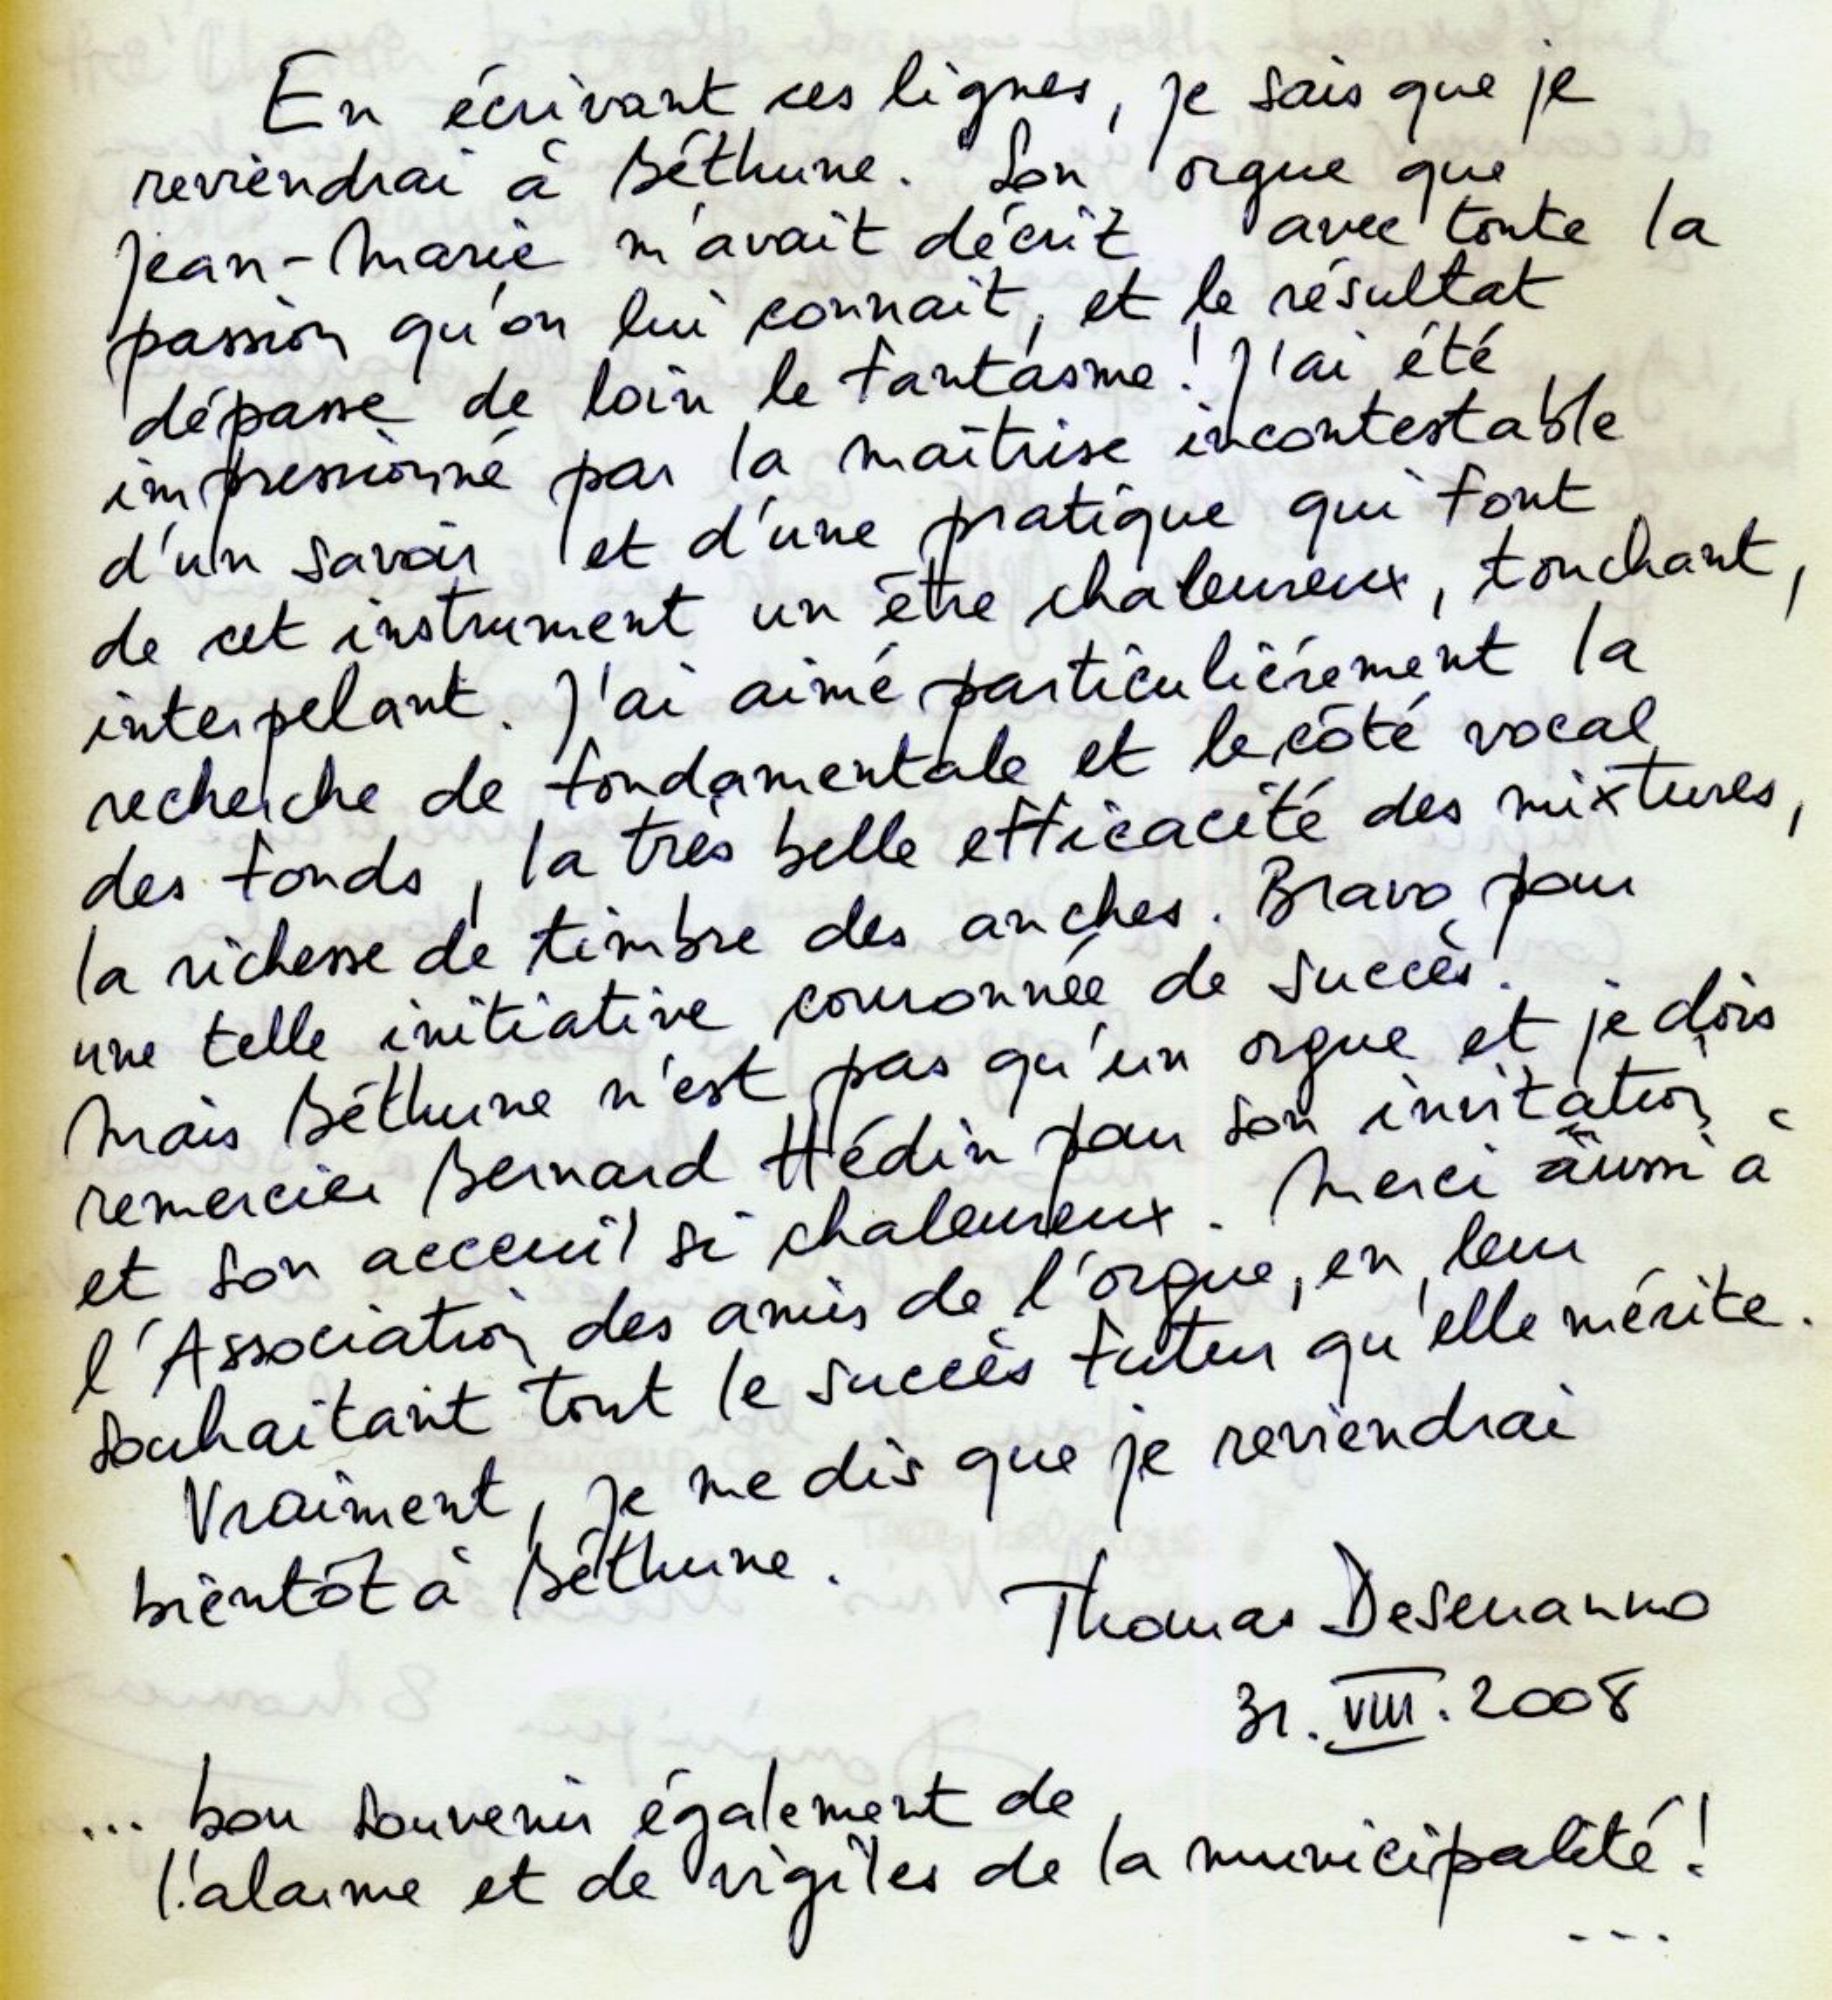 En écrivant ces lignes, je sais que je
reviendrai à Béthune. Son orgue que
Jean-Marie m'avait décrit avec toute la
passion qu'on lui connait, et le résultat
dépasse de loin le fantasme! J'ai été
impressionné par la maîtrise incontestable
d'un savoir et d'une pratique qui font
de cet instrument un être chaleureux, touchant,
interpelant. J'ai aimé particulièrement la
recherche de fondamentale et le côté vocal
des fonds, la très belle efficacité des mixtures,
la richesse de timbre des anches. Bravo pour
une telle initiative couronnée de succès!
Mais Béthune n'est pas qu'un orgue et je dois
remercier Bernard Hédin pour son invitation
et son acceuil si chaleureux. Merci aussi à
l'Association des amis de l'orgue, en leur
souhaitant tout le succès futur qu'elle mérite.
Vraiment, je me dis que je reviendrai
bientôt à Béthune.
Thomas Deserranno
31.VIII.2008
... bon souvenir également de
l'alarme et de vigiles de la municipalité!
...